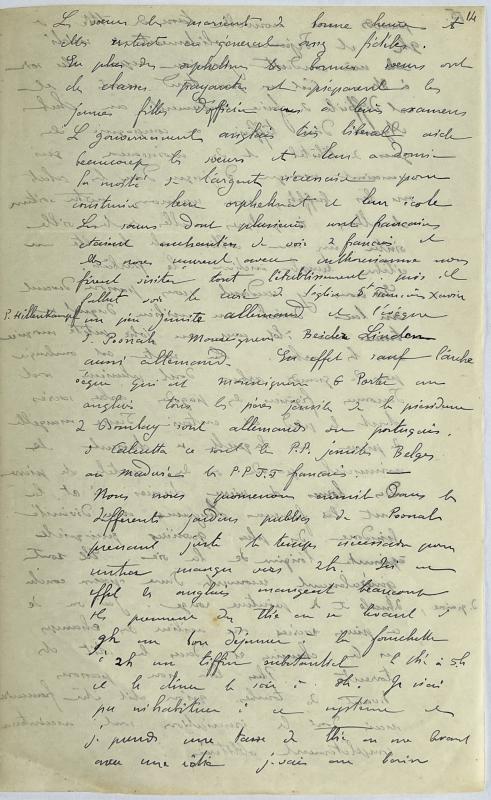 14
L sœurs les marient de bonne heure &
elles restent en général assez fidèles.
En plus des orphelins les bonnes sœurs ont
des classes payantes et préparent à les
jeunes filles d'officiers leurs examens
L gouvernement anglais très libéral aide
beaucoup les sœurs et leur a donné
la moitié de l'argent nécessaire pour
construire leur orphelinat et leur école
Les sœurs dont plusieurs sont françaises
étaient enchantées de voir 2 français et
elles nous avec enthousiasme nous
firent visiter tout l'établissement puis il
fallut voir le curé de l'église St François Xavier
P. Hillenkampf
un père jésuite allemand et l'évêque
d Poonah Monseigneur Beider Linden
aussi allemand. En effet sauf l'arche
vêque qui est monseigneur G Porter un
anglais tous les pères jésuites de la présidence
d Bombay sont allemands ou portugais.
à Calcutta ce sont les P.P. jésuites Belges
au maduré les P.P.J.J français. —
Nous nous promenons ensuite dans les
différents jardins publics de Poonah
prenant juste le temps nécessaire pour
rentrer manger vers 2h. En
effet les anglais mangent beaucoup
ils prennent du thé en se levant à
9h un bon déjeuner à la fourchette
à 2h un tiffin substantiel le thé à 5h
et le dîner le soir à 8h. Je n'ai
pu m'habituer à ce système et
je prends une tasse de thé en me levant
avec une rôtie je vais au bain